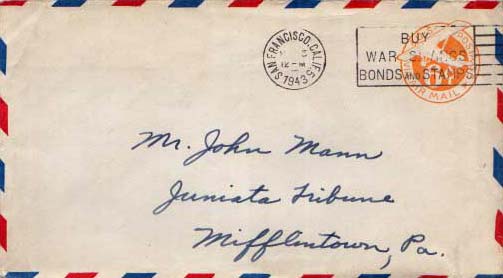 SAN FRANCISCO, CALIF. 5
12 - M
1943
BUY
WAR SAVINGS
BONDS AND STAMPS
AIR MAIL
Mr. John Mann
Juniata Tribune
Mifflintown, Pa.